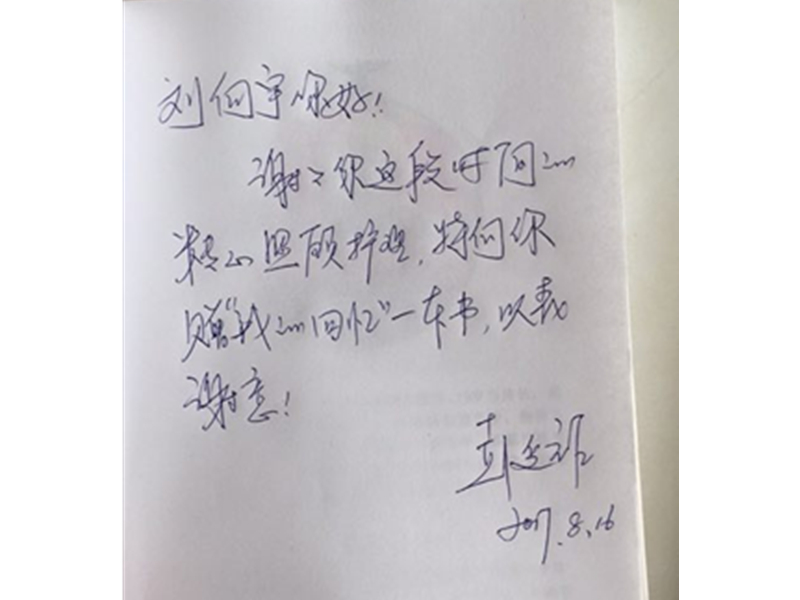 刘向宇你好！
谢谢你这段时间的
精心照顾护理，特向你
赠“我的回忆”一本书，以表
谢意！
2017.8.16